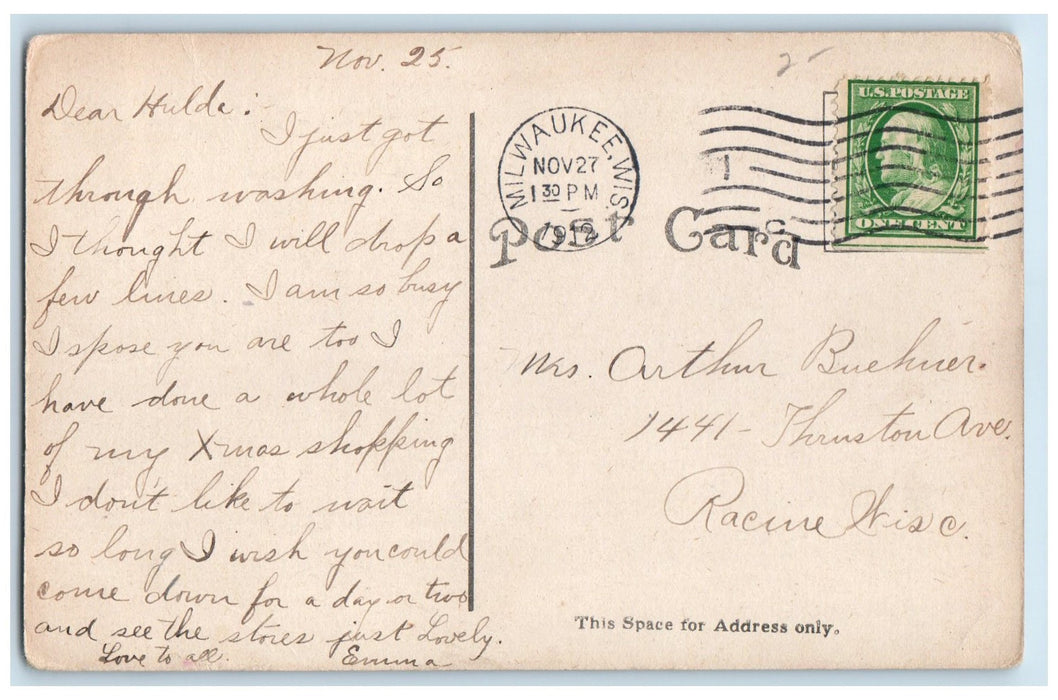 Nov. 25.
Dear Hulda:
I just got
through washing. So
I thought I will drop a
few lines. I am so busy
I spose you are too I
have done a whole lot
of my Xmas shopping
I don't like to wait
so long I wish you could
come down for a day or two
and see the stores just Lovely.
Love to all. Emma
25
MILWAUKEE, WIS.
NOV 27
1 30 PM
1912
1
U.S. POSTAGE
ONE CENT
Post Card
Mrs. Arthur Buehner.
1441 - Thruston Ave.
Racine Wisc.
This Space for Address only.